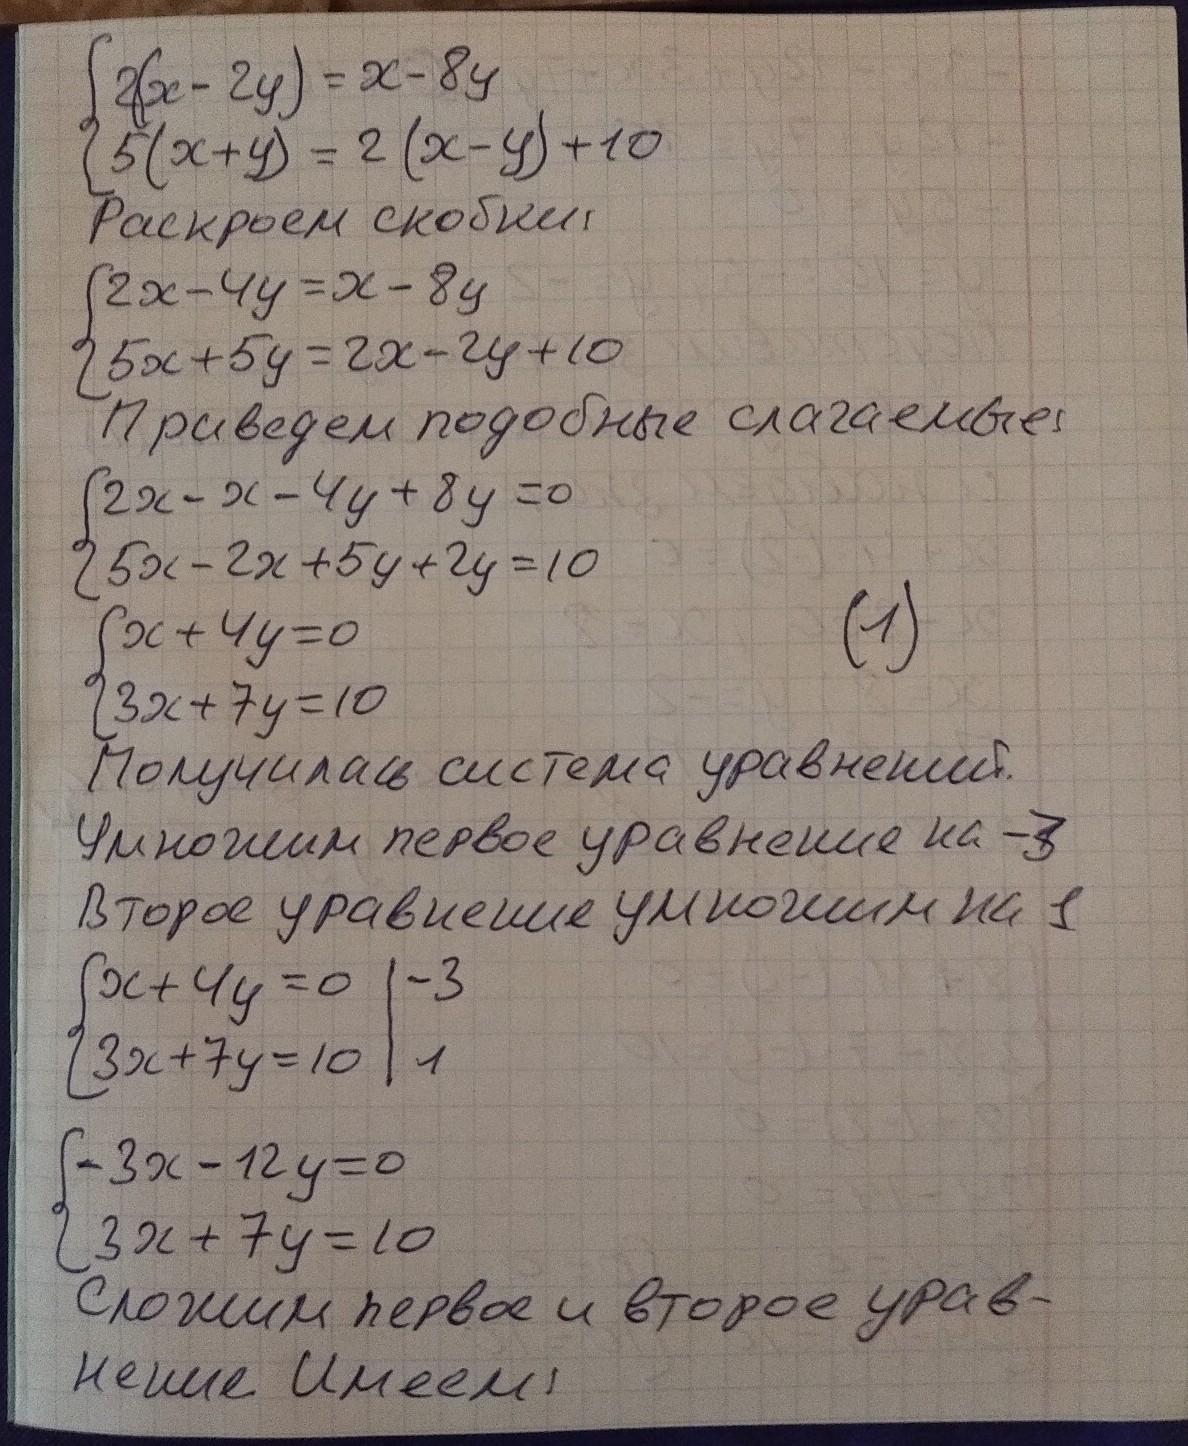 {2(x-2y)=x-8y
{5(x+y)=2(x-y)+10
Раскроем скобки:
{2x-4y=x-8y
{5x+5y=2x-2y+10
Приведем подобные слагаемые:
{2x-x-4y+8y=0
{5x-2x+5y+2y=10
{x+4y=0
(1)
{3x+7y=10
Получилась система уравнений.
Умножим первое уравнение на -3
Второе уравнение умножим на 1
{x+4y=0 |-3
{3x+7y=10 | 1
{-3x-12y=0
{3x+7y=10
Сложим первое и второе урав-
нение. Имеем: